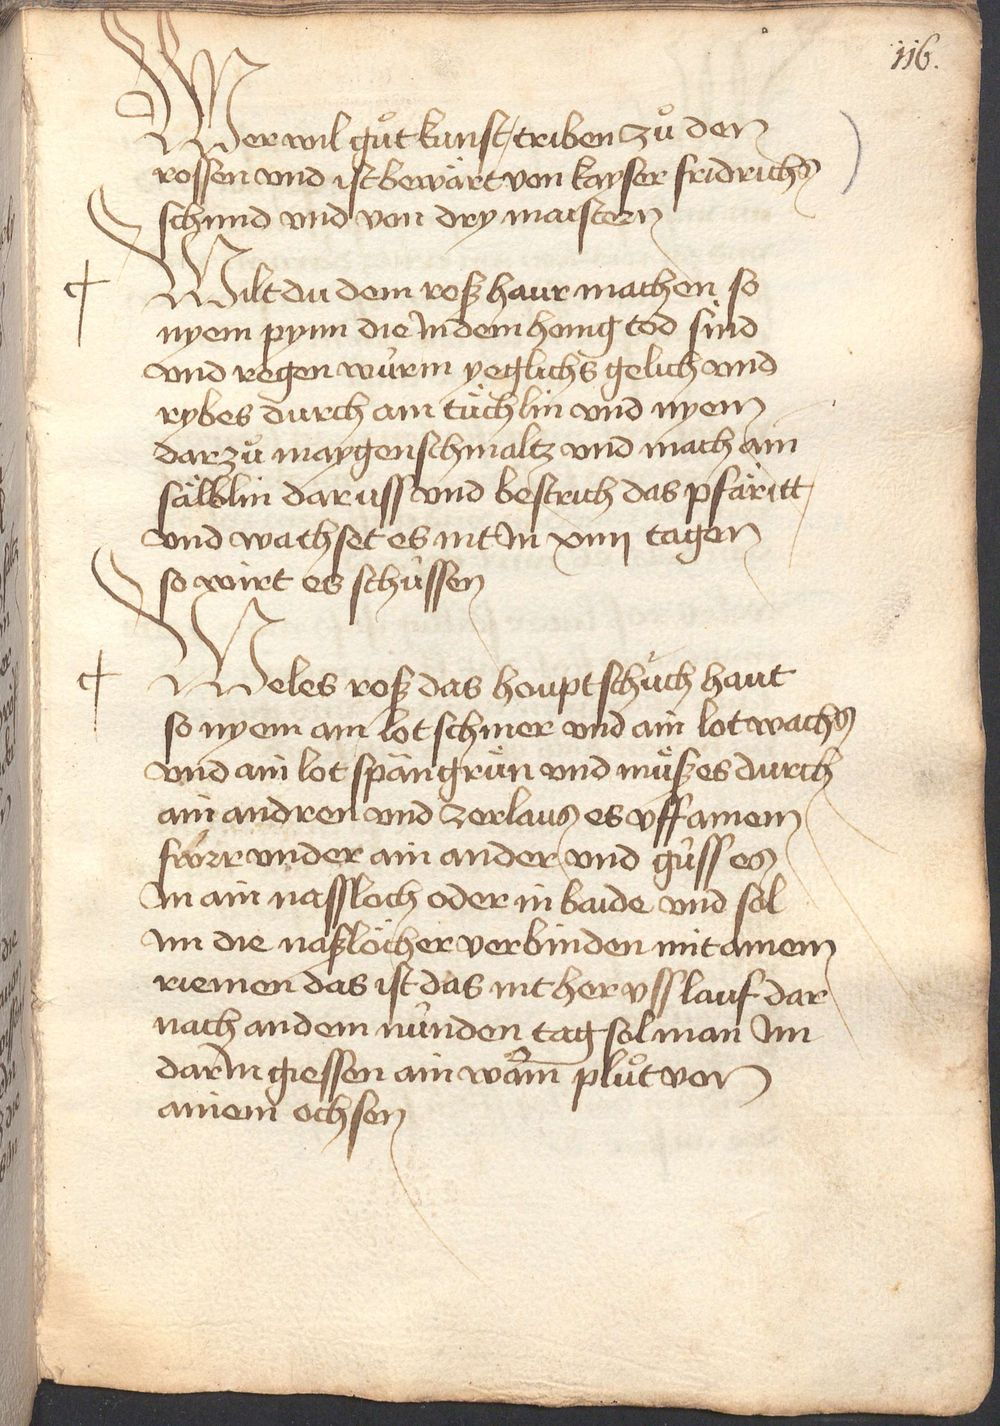 116.
Wer wil gůt kunst triben zů den
rossen vnd ist bewärt von kayser fridrichs
schmid vnd von dry maistern
Wilt du dem roß haur machen so
nyem pynn die In dem honig tod sind
vnd regen wúrm yeglichs gelich vnd
rybes durch ain tüchlin vnd nyem
darzů maygenschmaltz vnd mach ain
sälblin daruss vnd bestrich das pfäritt
vnd wachset es nit In xiiii tagen
so wirt es schússen
Weles roß das houptschüch haut
so nyem ain lot schmer vnd ain lot wachs
vnd ain lot spangrün vnd müß es durch
ain andren vnd zerlaus es vff ainem
fwrr vnder ain ander vnd gúss es
In ain nassloch oder in baide vnd sol
im die naßlöcher verbinden mit ainem
riemen das ist das nit her vss lauf dar
nach an dem núnden tag sol man Im
darIn giessen ain warm plůt von
ainem ochsen